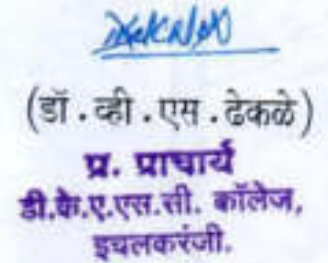 (डॉ . व्ही . एस . ढेकळे)
प्र. प्राचार्य
डी.के.ए.एस.सी. कॉलेज,
इचलकरंजी.